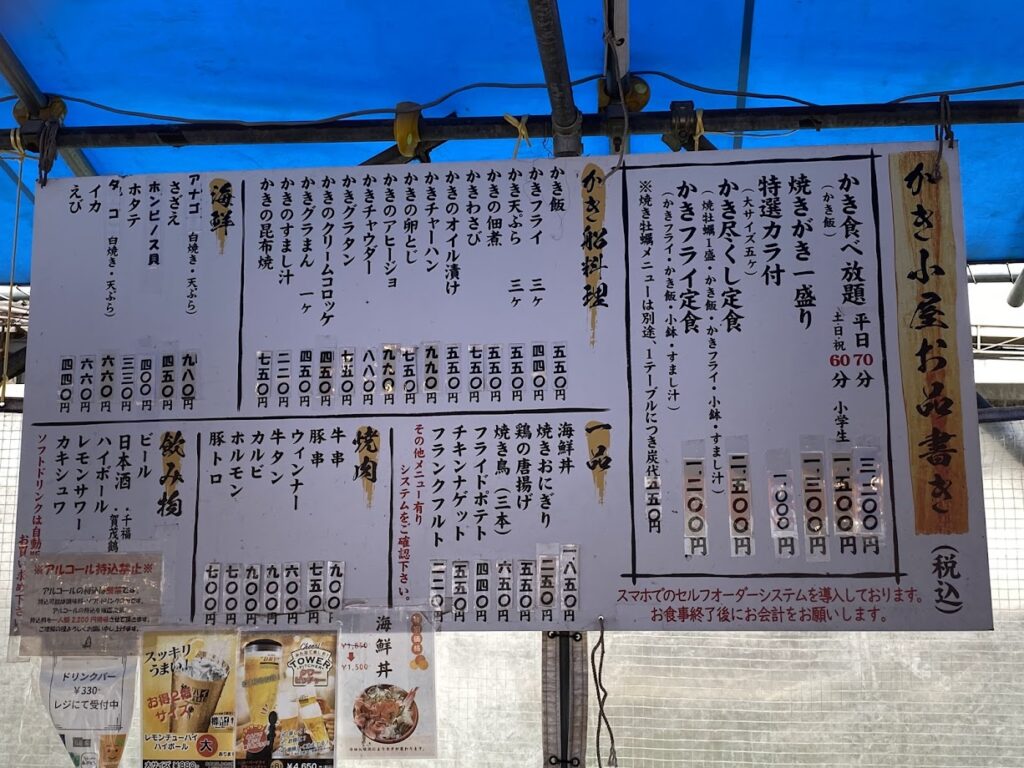 かき小屋お品書き
(税込)
かき食べ放題 平日70分 三、二〇〇円
(かき飯) 土日・祝60分 小学生 一、五〇〇円
焼きがき一盛り 一、三〇〇円
特選カラ付 一、〇〇〇円
(大サイズ五ヶ)
かき尽くし定食 二、五〇〇円
(焼牡蠣1盛・かき飯・かきフライ・小鉢・すまし汁)
かきフライ定食 一、二〇〇円
(かきフライ・かき飯・小鉢・すまし汁)
※焼き牡蠣メニューは別途、1テーブルにつき炭代五五〇円
スマホでのセルフオーダーシステムを導入しております。
お食事終了後にお会計をお願いします。
かき船料理
かき飯 五五〇円
かきフライ 三ヶ 四四〇円
かき天ぷら 三ヶ 五五〇円
かきの佃煮 五五〇円
かきわさび 七五〇円
かきのオイル漬け 五五〇円
かきチャーハン 九九〇円
かきの卵とじ 七五〇円
かきのアヒージョ 九九〇円
かきチャウダー 八八〇円
かきグラタン 七五〇円
かきのクリームコロッケ 四五〇円
かきグラまん 一ヶ 四五〇円
かきのすまし汁 二二〇円
かきの昆布焼 七五〇円
海鮮
アナゴ (白焼き・天ぷら) 九八〇円
さざえ 四五〇円
ホンビノス貝 四〇〇円
ホタテ 三三〇円
タコ (白焼き・天ぷら) 六六〇円
イカ 六六〇円
えび 四四〇円
一品
海鮮丼 一、八五〇円
焼きおにぎり 二五〇円
鶏の唐揚げ 五五〇円
焼き鳥(三本) 六六〇円
フライドポテト 四四〇円
チキンナゲット 五五〇円
フランクフルト 二二〇円
その他メニュー有り
システムをご確認下さい。
焼肉
牛串 九〇〇円
豚串 七五〇円
ウィンナー 六〇〇円
牛タン 九〇〇円
カルビ 九〇〇円
ホルモン 七〇〇円
豚トロ 七〇〇円
飲み物
ビール
日本酒 ・千福 ・賀茂鶴
ハイボール
レモンサワー
カキシュワ
ソフトドリンクは自動販
お買い求め下さい
※アルコール持込禁止※
ドリンクバー
¥330
レジにて受付中
スッキリ
うまい!
お得2倍
サイズ
レモンチューハイ
ハイボール
大
あります
大サイズ¥880
Cheers
TOWER
ピッチャー
¥4,650
特別価格
海鮮丼
¥1,850
¥1,500